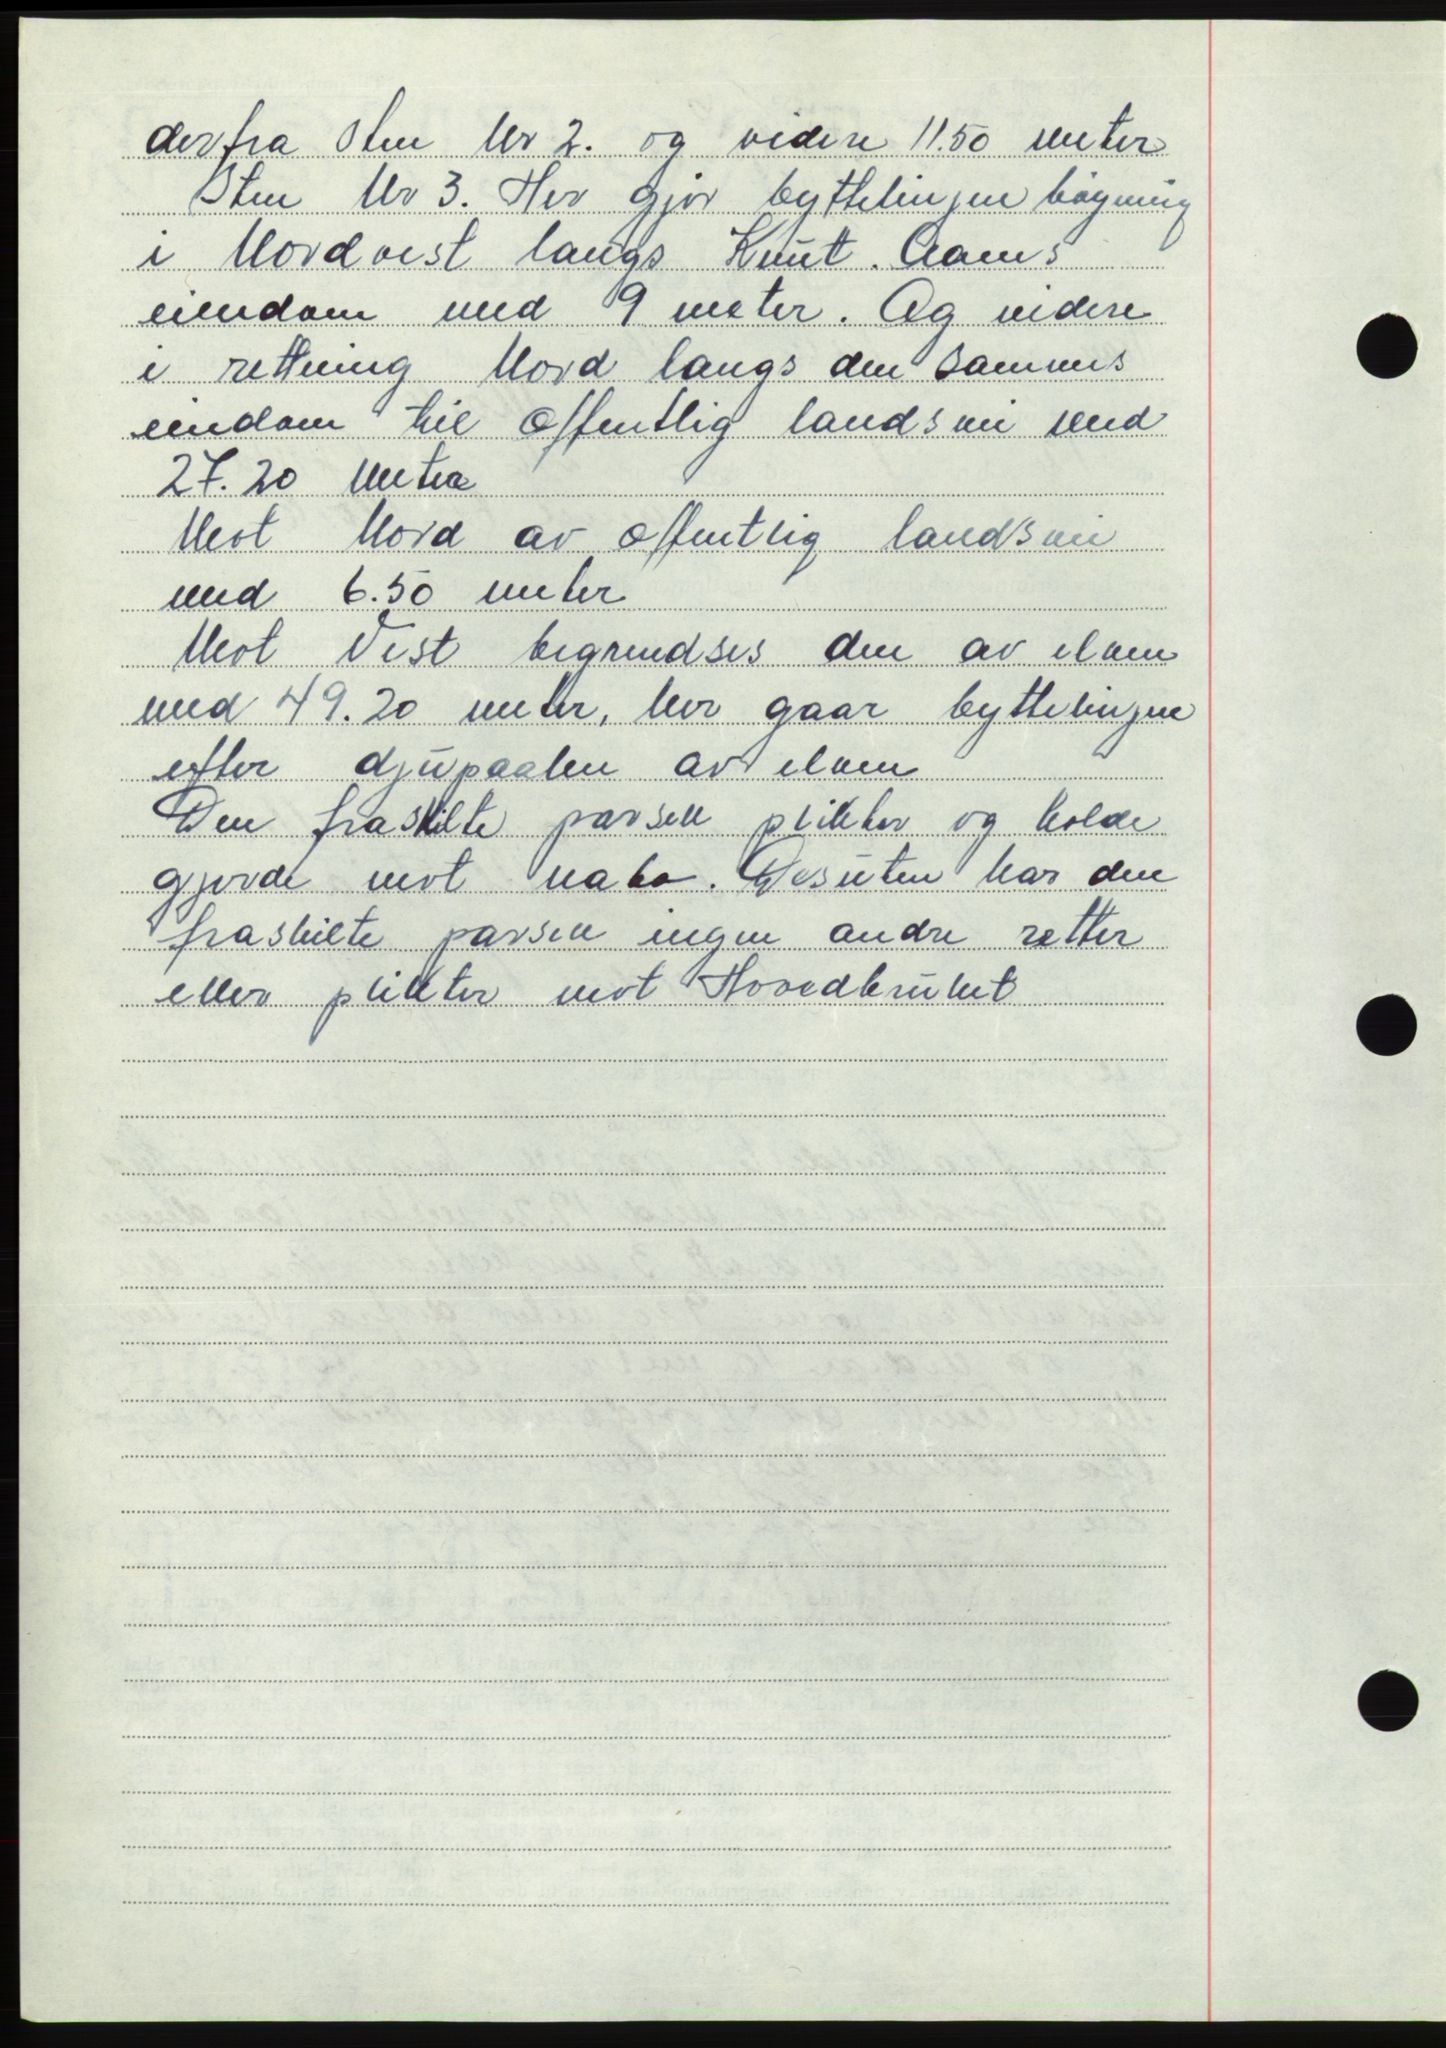 derfra Sten Nr 2. og videre 11.50 meter
Sten Nr 3. Her gjør byttelinjen bøgning
i Nordvest langs Knut. Aams
eiendom med 9 meter. Og videre
i rettning Nord langs den sammes
eiendom til offentlig landsvei med
27.20 meter
Mot Nord av offentlig landsvei
med 6.50 meter
Mot Vest begrendses den av elven
med 49.20 meter, her gaar byttelinjen
efter djupaalen av elven
Den fraskilte parsell plikter og holde
gjerde mot nabo. Desuten har den
fraskilte parsell ingen andre retter
eller plikter mot Hovedbruket